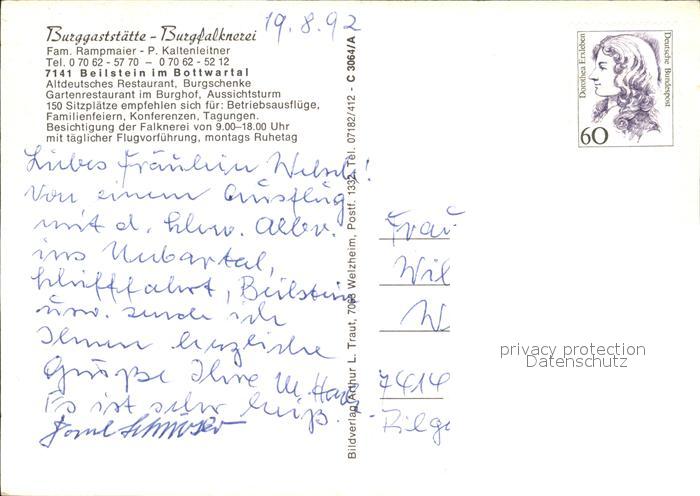 Burggaststätte - Burgfalknerei
Fam. Rampmaier - P. Kaltenleitner
Tel. 0 70 62 - 57 70 – 0 70 62 - 52 12
7141 Beilstein im Bottwartal
Altdeutsches Restaurant, Burgschenke
Gartenrestaurant im Burghof, Aussichtsturm
150 Sitzplätze empfehlen sich für: Betriebsausflüge,
Familienfeiern, Konferenzen, Tagungen.
Besichtigung der Falknerei von 9.00–18.00 Uhr
mit täglicher Flugvorführung, montags Ruhetag
19.8.92
Liebes Fräulein
Von einem Ausflug
mit d. schw. Albv.
ins
Schifffahrt, Beilstein
usw. sende ich
Ihnen herzliche
Grüße Ihre M.
Es ist sehr heiß.
Bildverlag Arthur L. Traut, 7063 Welzheim, Postf. 1332, Tel. 07182/412 - C 3064/A
Dorothea Erxleben
Deutsche Bundespost
60
Frau
Wil
W
7414
privacy protection
Datenschutz